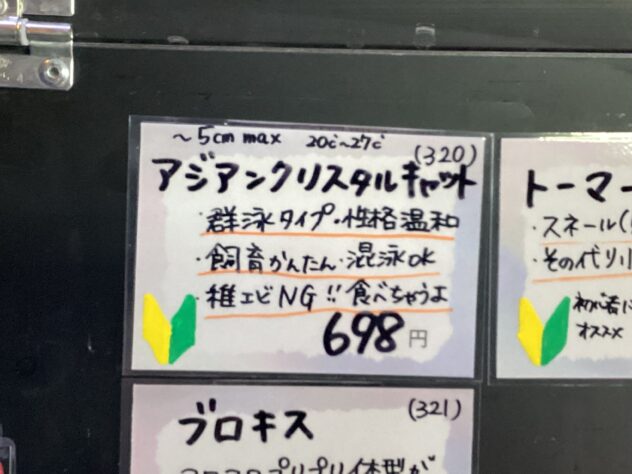 ~5cm max 20℃~27℃
(320)
アジアンクリスタルキャット
・群泳タイプ・性格温和
・飼育かんたん・混泳OK
・稚エビNG!!食べちゃうよ
698円
トーマー
・スネール(
・その代り小
初心者に
オススメ
(321)
ブロキス
プリプリ体型が